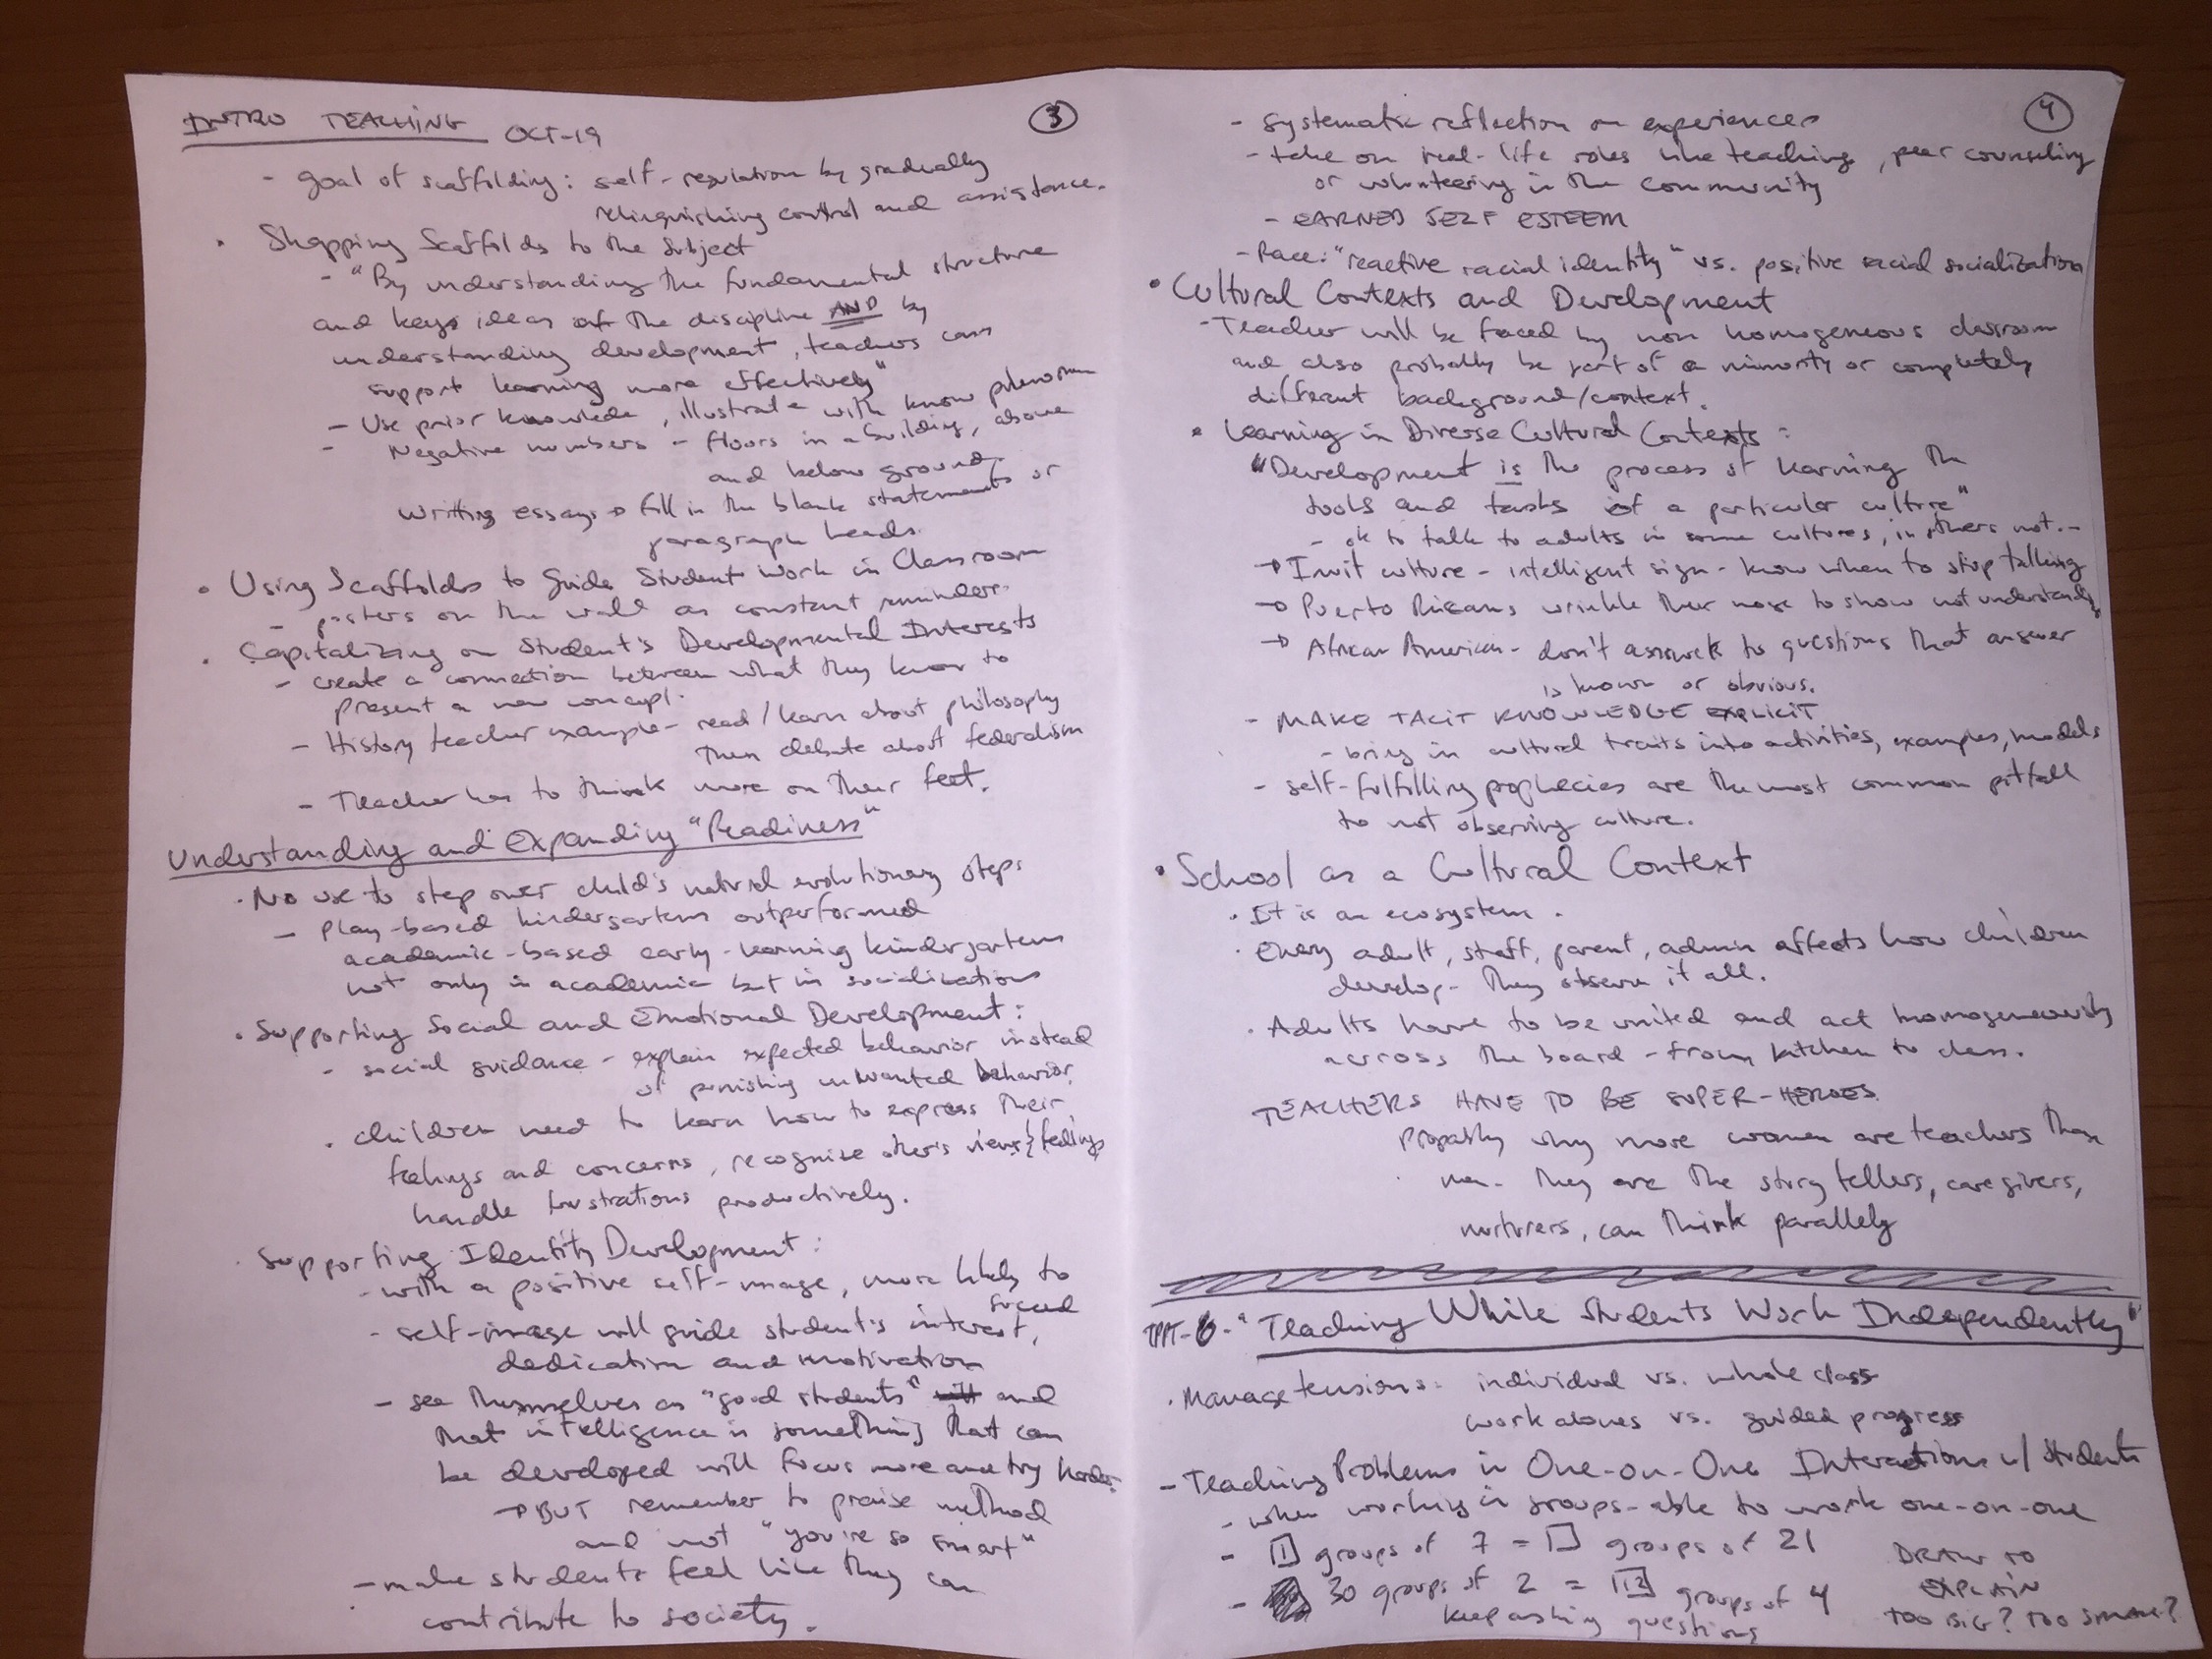 INTRO TEACHING OCT-19 3
- goal of scaffolding: self-regulation by gradually
relinquishing control and assistance.
• Shapping Scaffolds to the Subject
- "By understanding the fundamental structure
and keys ideas of the discipline AND by
understanding development, teachers can
support learning more effectively"
- Use prior knowlede, illustrate with know phenomenon
- Negative numbers - floors in a building, above
and below ground,
writting essays → fill in the blank statements or
paragraph heads.
• Using Scaffolds to Guide Student Work in Classroom
- posters on the wall as constant reminders.
• Capitalizing on Student's Developmental Interests
- create a connection between what they know to
present a new concept.
- History teacher example - read/learn about philosophy
then debate about federalism
- Teacher has to think more on their feet.
Understanding and Expanding "Readiness"
• No use to step over child's natural evolutionary steps
- Play-based kindergartens outperformed
academic-based early-learning kindergartens
not only in academic but in socializations
• Supporting Social and Emotional Development:
- social guidance - explain expected behavior instead
of punishing unwanted behavior.
• children need to learn how to express their
feelings and concerns, recognize other's views & feelings
handle frustrations productively.
• Supporting Identity Development:
- with a positive self-image, more likely to
succeed
- self-image will guide student's interest,
dedication and motivation
- see themselves as "good students" and
that intelligence is something that can
be developed will focus more and try harder.
→ BUT remember to praise method
and not "you're so smart"
- make students feel like they can
contribute to society.
4
- systematic reflection on experiences
- take on real-life roles like teaching, peer counseling
or volunteering in the community
- EARNED SELF ESTEEM
- Race: "reactive racial identity" vs. positive racial socialization
• Cultural Contexts and Development
- Teacher will be faced by non homogeneous classroom
and also probably be part of a minority or completely
different background/context.
• Learning in Diverse Cultural Contexts:
"Development is the process of learning the
tools and tasks of a particular culture"
- ok to talk to adults in some cultures, in others not.-
→ Inuit culture - intelligent sign - know when to stop talking
→ Puerto Ricans wrinkle their nose to show not understanding
→ African American - don't answer to questions that answer
is known or obvious.
- MAKE TACIT KNOWLEDGE EXPLICIT
- bring in cultural traits into activities, examples, models
- self-fulfilling prophecies are the most common pitfall
to not observing culture.
• School as a Cultural Context
• It is an ecosystem.
• Every adult, staff, parent, admin affects how children
develop - They observe it all.
• Adults have to be united and act homogeneously
across the board - from kitchen to class.
TEACHERS HAVE TO BE SUPER-HEROES
Propably why more women are teachers than
men - they are the story tellers, caregivers,
nurturers, can think parallely
TPPT-6- "Teaching While Students Work Independently"
• Manage tensions: individual vs. whole class
work alones vs. guided progress
- Teaching Problems in One-on-One Interactions w/ Students
- when working in groups - able to work one-on-one
- groups of 7 = groups of 21
- 30 groups of 2 = groups of 4
keep asking questions
DRAW TO
EXPLAIN
TOO BIG? TOO SMALL?